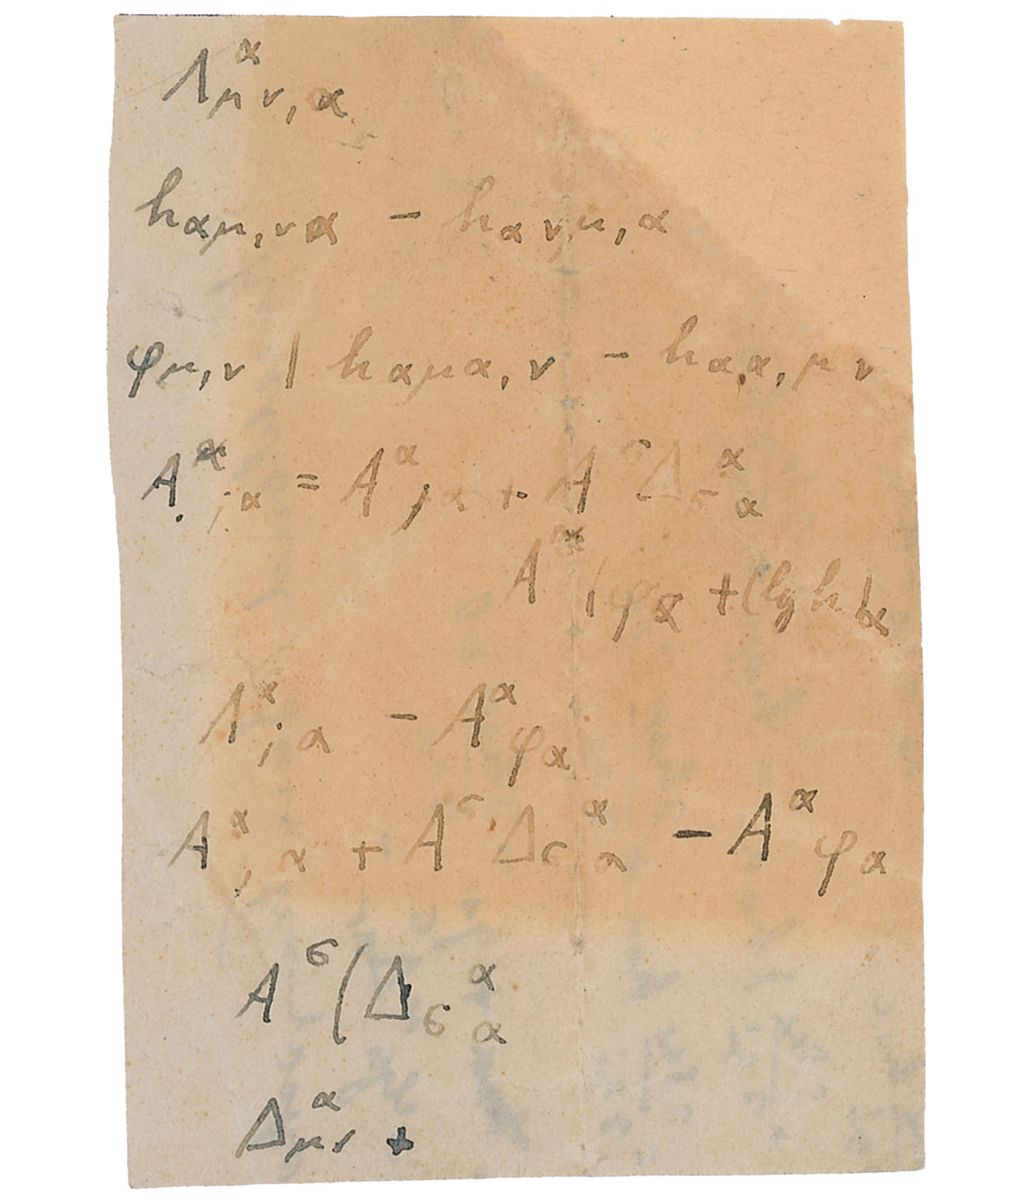 Λ^α_{μν,α}
h_{αμ,να} - h_{ανμ,α}
φ_{μ,ν} | h_{αμα,ν} - h_{αα,μν}
A^α_{;α} = A^α_{,α} + A^σ Δ_σ^α_α
A^α (φ_α + (lg h)_α
A^α_{;α} - A^α φ_α
A^α_{,α} + A^σ Δ_σ^α_α - A^α φ_α
A^σ (Δ_σ^α_α
Δ^α_{μν} +